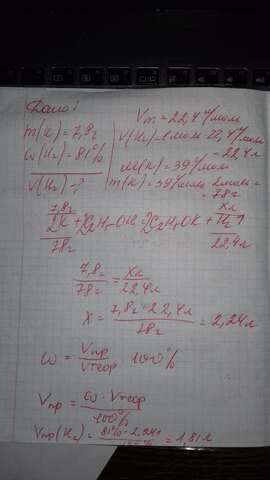 Дано:
m(K) = 7,8г
ω(H₂) = 81%
V(H₂) - ?
Vm = 22,4 л/моль
V(H₂) = 1моль · 22,4 л/моль
= 22,4л
M(K) = 39 г/моль
m(K) = 39 г/моль · 2моль =
= 78г
7,8г xл
2K + 2C₂H₅OH = 2C₂H₅OK + H₂↑
78г 22,4л
7,8г / 78г = xл / 22,4л
x = 7,8г · 22,4л / 78г = 2,24л
ω = Vпр / Vтеор · 100%
Vпр = ω · Vтеор / 100%
Vпр(H₂) = 81% · 2,24л / 100% = 1,81л